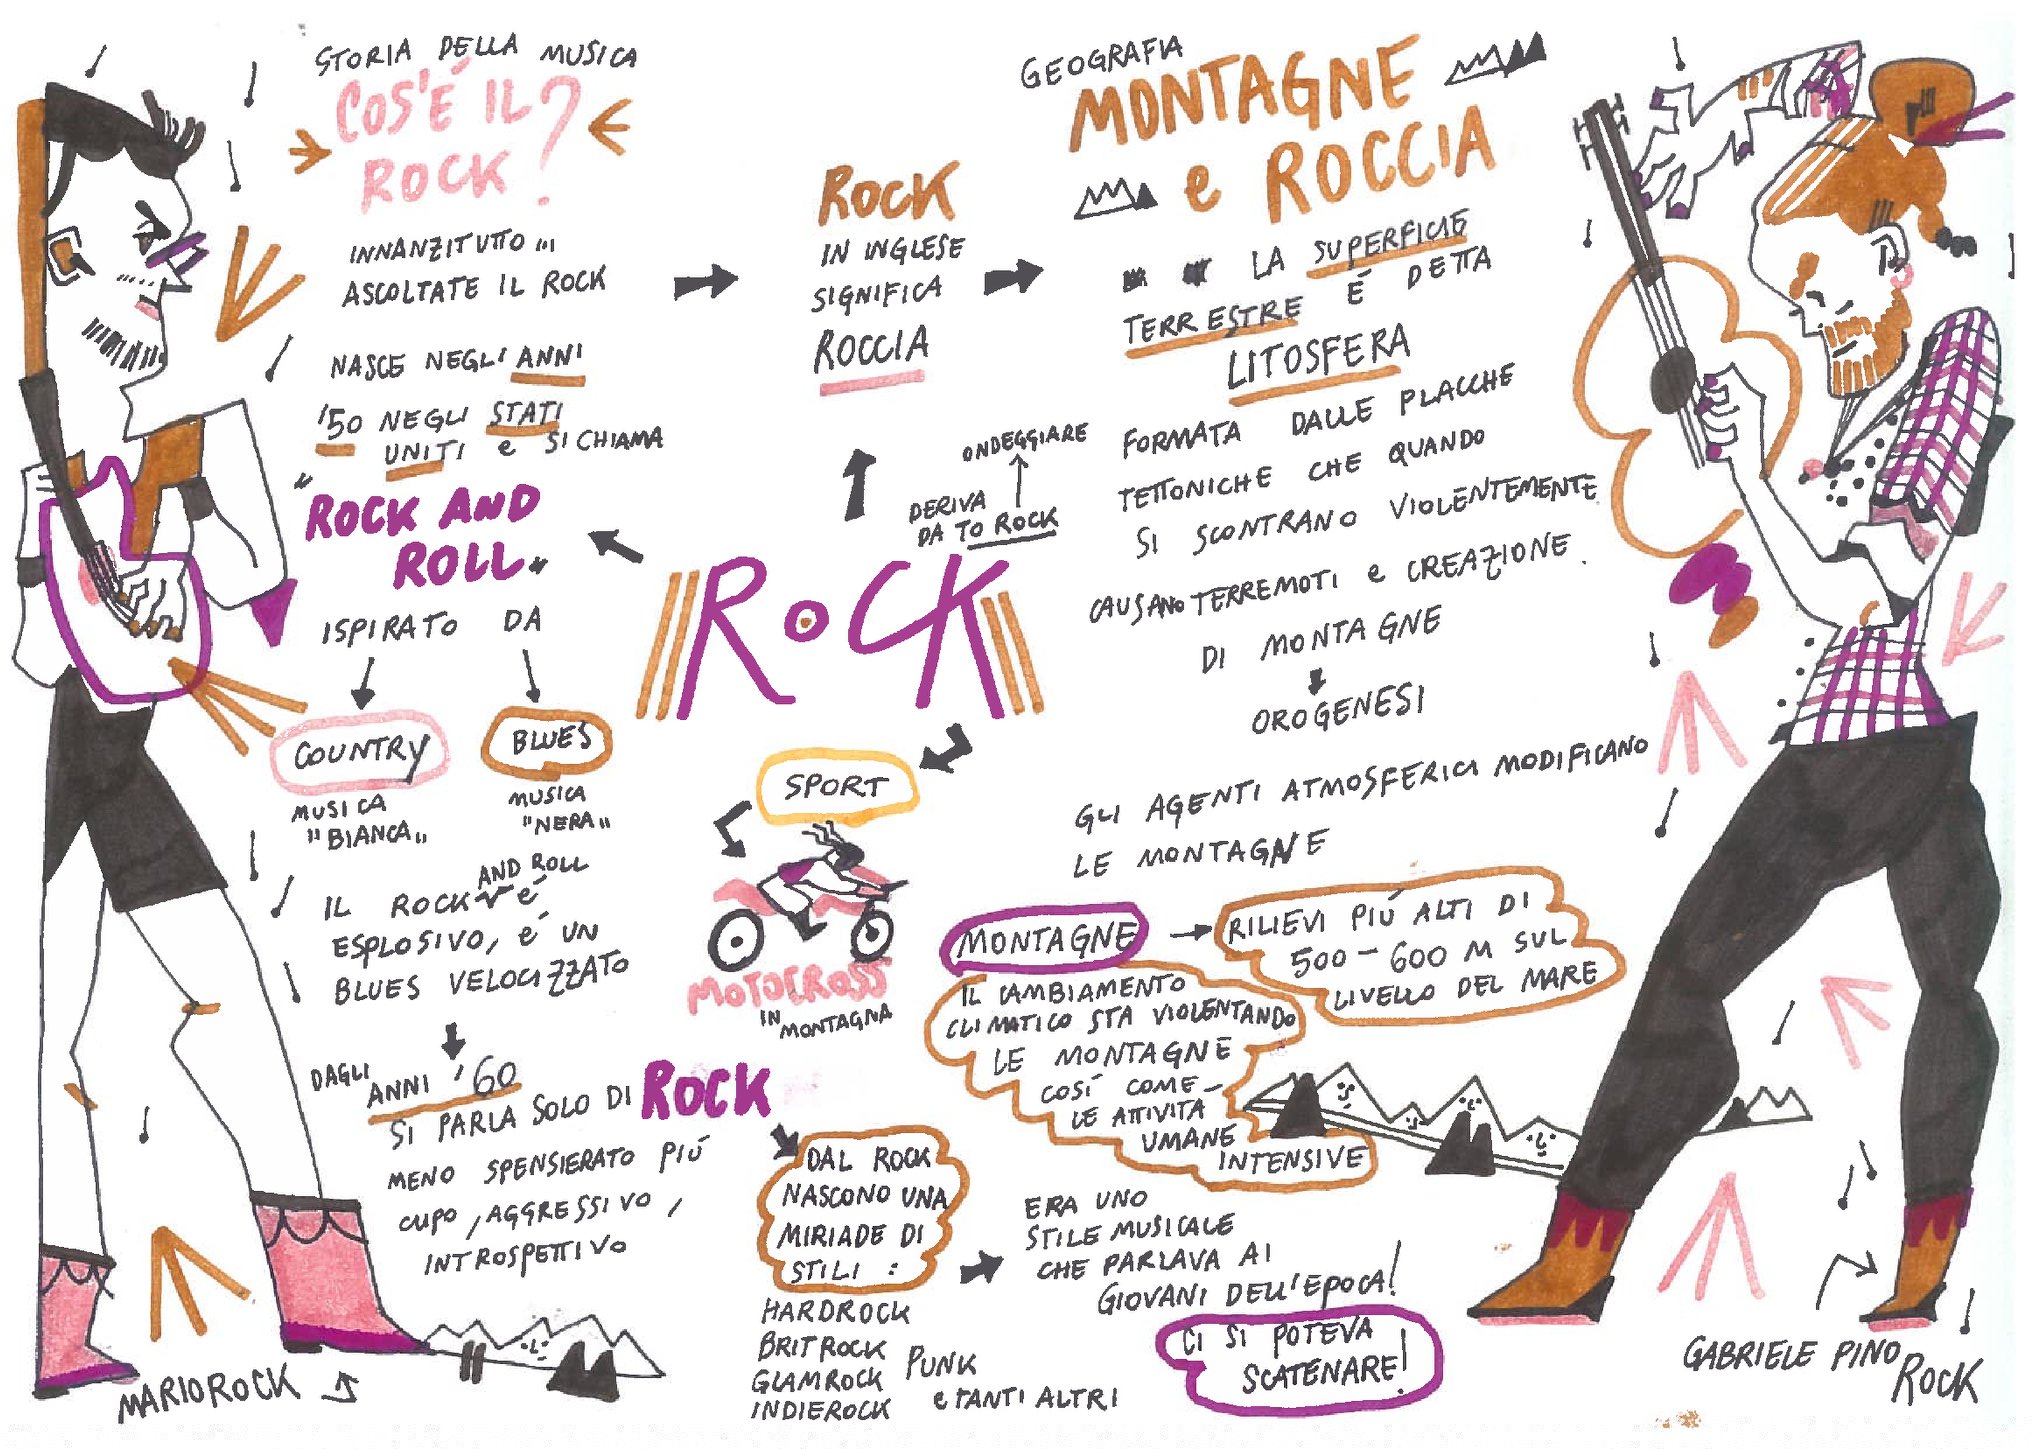 STORIA DELLA MUSICA
COS'É IL
ROCK?
INNANZITUTTO...
ASCOLTATE IL ROCK
NASCE NEGLI ANNI
'50 NEGLI STATI
UNITI e SI CHIAMA
"ROCK AND
ROLL"
ISPIRATO DA
COUNTRY
MUSICA
"BIANCA"
BLUES
MUSICA
"NERA"
AND ROLL
IL ROCK é
ESPLOSIVO, é UN
BLUES VELOCIZZATO
DAGLI ANNI '60
SI PARLA SOLO DI ROCK
MENO SPENSIERATO PIÚ
CUPO, AGGRESSIVO,
INTROSPETTIVO
MARIOROCK
ROCK
IN INGLESE
SIGNIFICA
ROCCIA
ONDEGGIARE
DERIVA
DA TO ROCK
ROCK
SPORT
MOTOCROSS
IN MONTAGNA
DAL ROCK
NASCONO UNA
MIRIADE DI
STILI:
HARDROCK
BRITROCK
GLAMROCK PUNK
INDIEROCK e TANTI ALTRI
ERA UNO
STILE MUSICALE
CHE PARLAVA AI
GIOVANI DELL'EPOCA!
CI SI POTEVA
SCATENARE!
GEOGRAFIA
MONTAGNE
e ROCCIA
LA SUPERFICIE
TERRESTRE É DETTA
LITOSFERA
FORMATA DALLE PLACCHE
TETTONICHE CHE QUANDO
SI SCONTRANO VIOLENTEMENTE
CAUSANO TERREMOTI e CREAZIONE
DI MONTAGNE
OROGENESI
GLI AGENTI ATMOSFERICI MODIFICANO
LE MONTAGNE
MONTAGNE
RILIEVI PIÚ ALTI DI
500-600 M SUL
LIVELLO DEL MARE
IL CAMBIAMENTO
CLIMATICO STA VIOLENTANDO
LE MONTAGNE
COSÍ COME
LE ATTIVITA
UMANE
INTENSIVE
GABRIELE PINO
ROCK